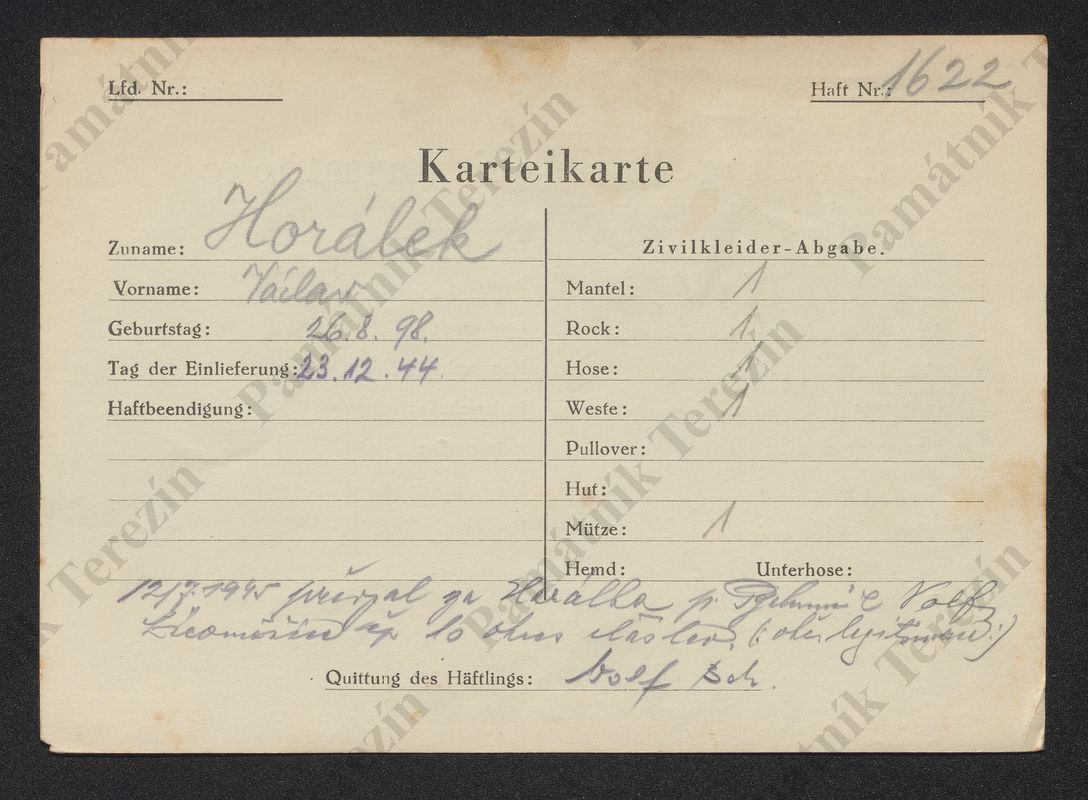 Lfd. Nr.:
Haft Nr.: 1622
Karteikarte
Zuname: Horálek
Vorname: Václav
Geburtstag: 26.8.98.
Tag der Einlieferung: 23.12.44.
Haftbeendigung:
Zivilkleider-Abgabe.
Mantel: 1
Rock: 1
Hose: 1
Weste: 1
Pullover:
Hut:
Mütze: 1
Hemd: Unterhose:
12/7.1945 převzal za Horálka p.
čp 10 okres
Quittung des Häftlings: Wolf
Památník Terezín